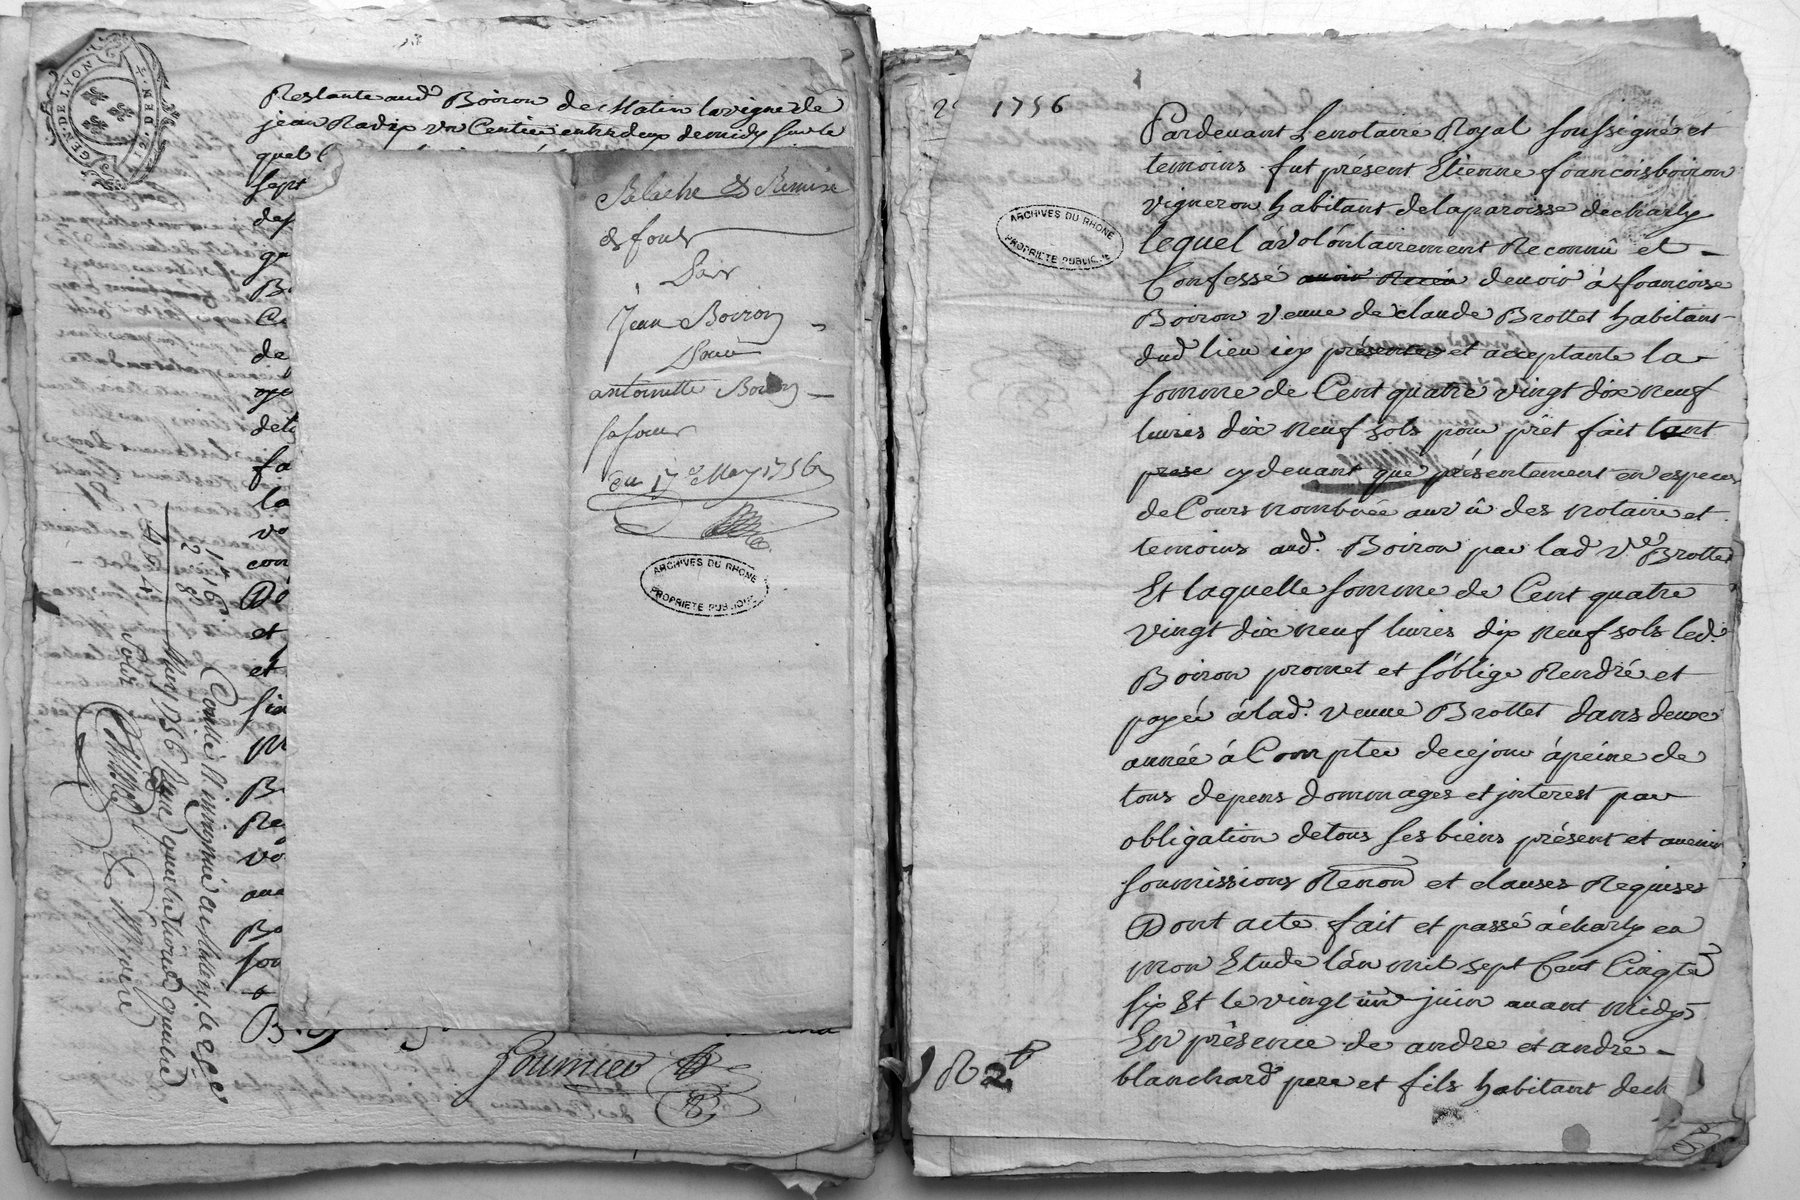 GEN. DE LYON
12. DEN. 4
Restante aud. Boiron de Matin la vigne de
jean Radix un Centier entre deux de midy sur le
quel
sept
des
qu
B
Ce
de
det
fa
la
vo
con
Do
et
et
sin
B
Re
vo
aud
Bo
son
B
Relache & Remise
de fonds
Par
Jean Boiron
Pour
antoinette Boiron
sa sœur
du 17e May 1756
ARCHIVES DU RHONE
PROPRIETE PUBLIQUE
Fournier
1" 16
2 8
4" 4
Controllé & insinué au Millery, le
May 1756 Reçu quatre livres quatre
sols
1756
ARCHIVES DU RHONE
PROPRIETE PUBLIQUE
Pardevant Le notaire Royal soussigné et
temoins fut présent Etienne francois boiron
vigneron habitant de la paroisse de charly
lequel à volontairement Reconnu et
Confessé avoir Receu devoir à francoise
Boiron veuve de claude Brottet habitans
dud. lieu icy présente et acceptante la
somme de Cent quatre vingt dix neuf
livres dix neuf sols pour prêt fait tant
prese cy devant que présentement en especes
de Cours nombrée au vû des notaire et
temoins aud. Boiron par lad. Ve. Brottet
Et laquelle somme de Cent quatre
vingt dix neuf livres dix neuf sols led.
Boiron promet et s'oblige Rendré et
payér à lad. veuve Brottet dans deux
année à Compter de ce jour à peine de
tous depens dommages et jnterest par
obligation de tous ses biens présent et avenir
soumissions Renon et clauses Requises
Dont acte fait et passé à charly en
mon Etude l'an mil sept Cent Cinqte
six Et le vingt juin avant midy
En présence de andre et andre
blanchard pere et fils habitant de ch
R 2